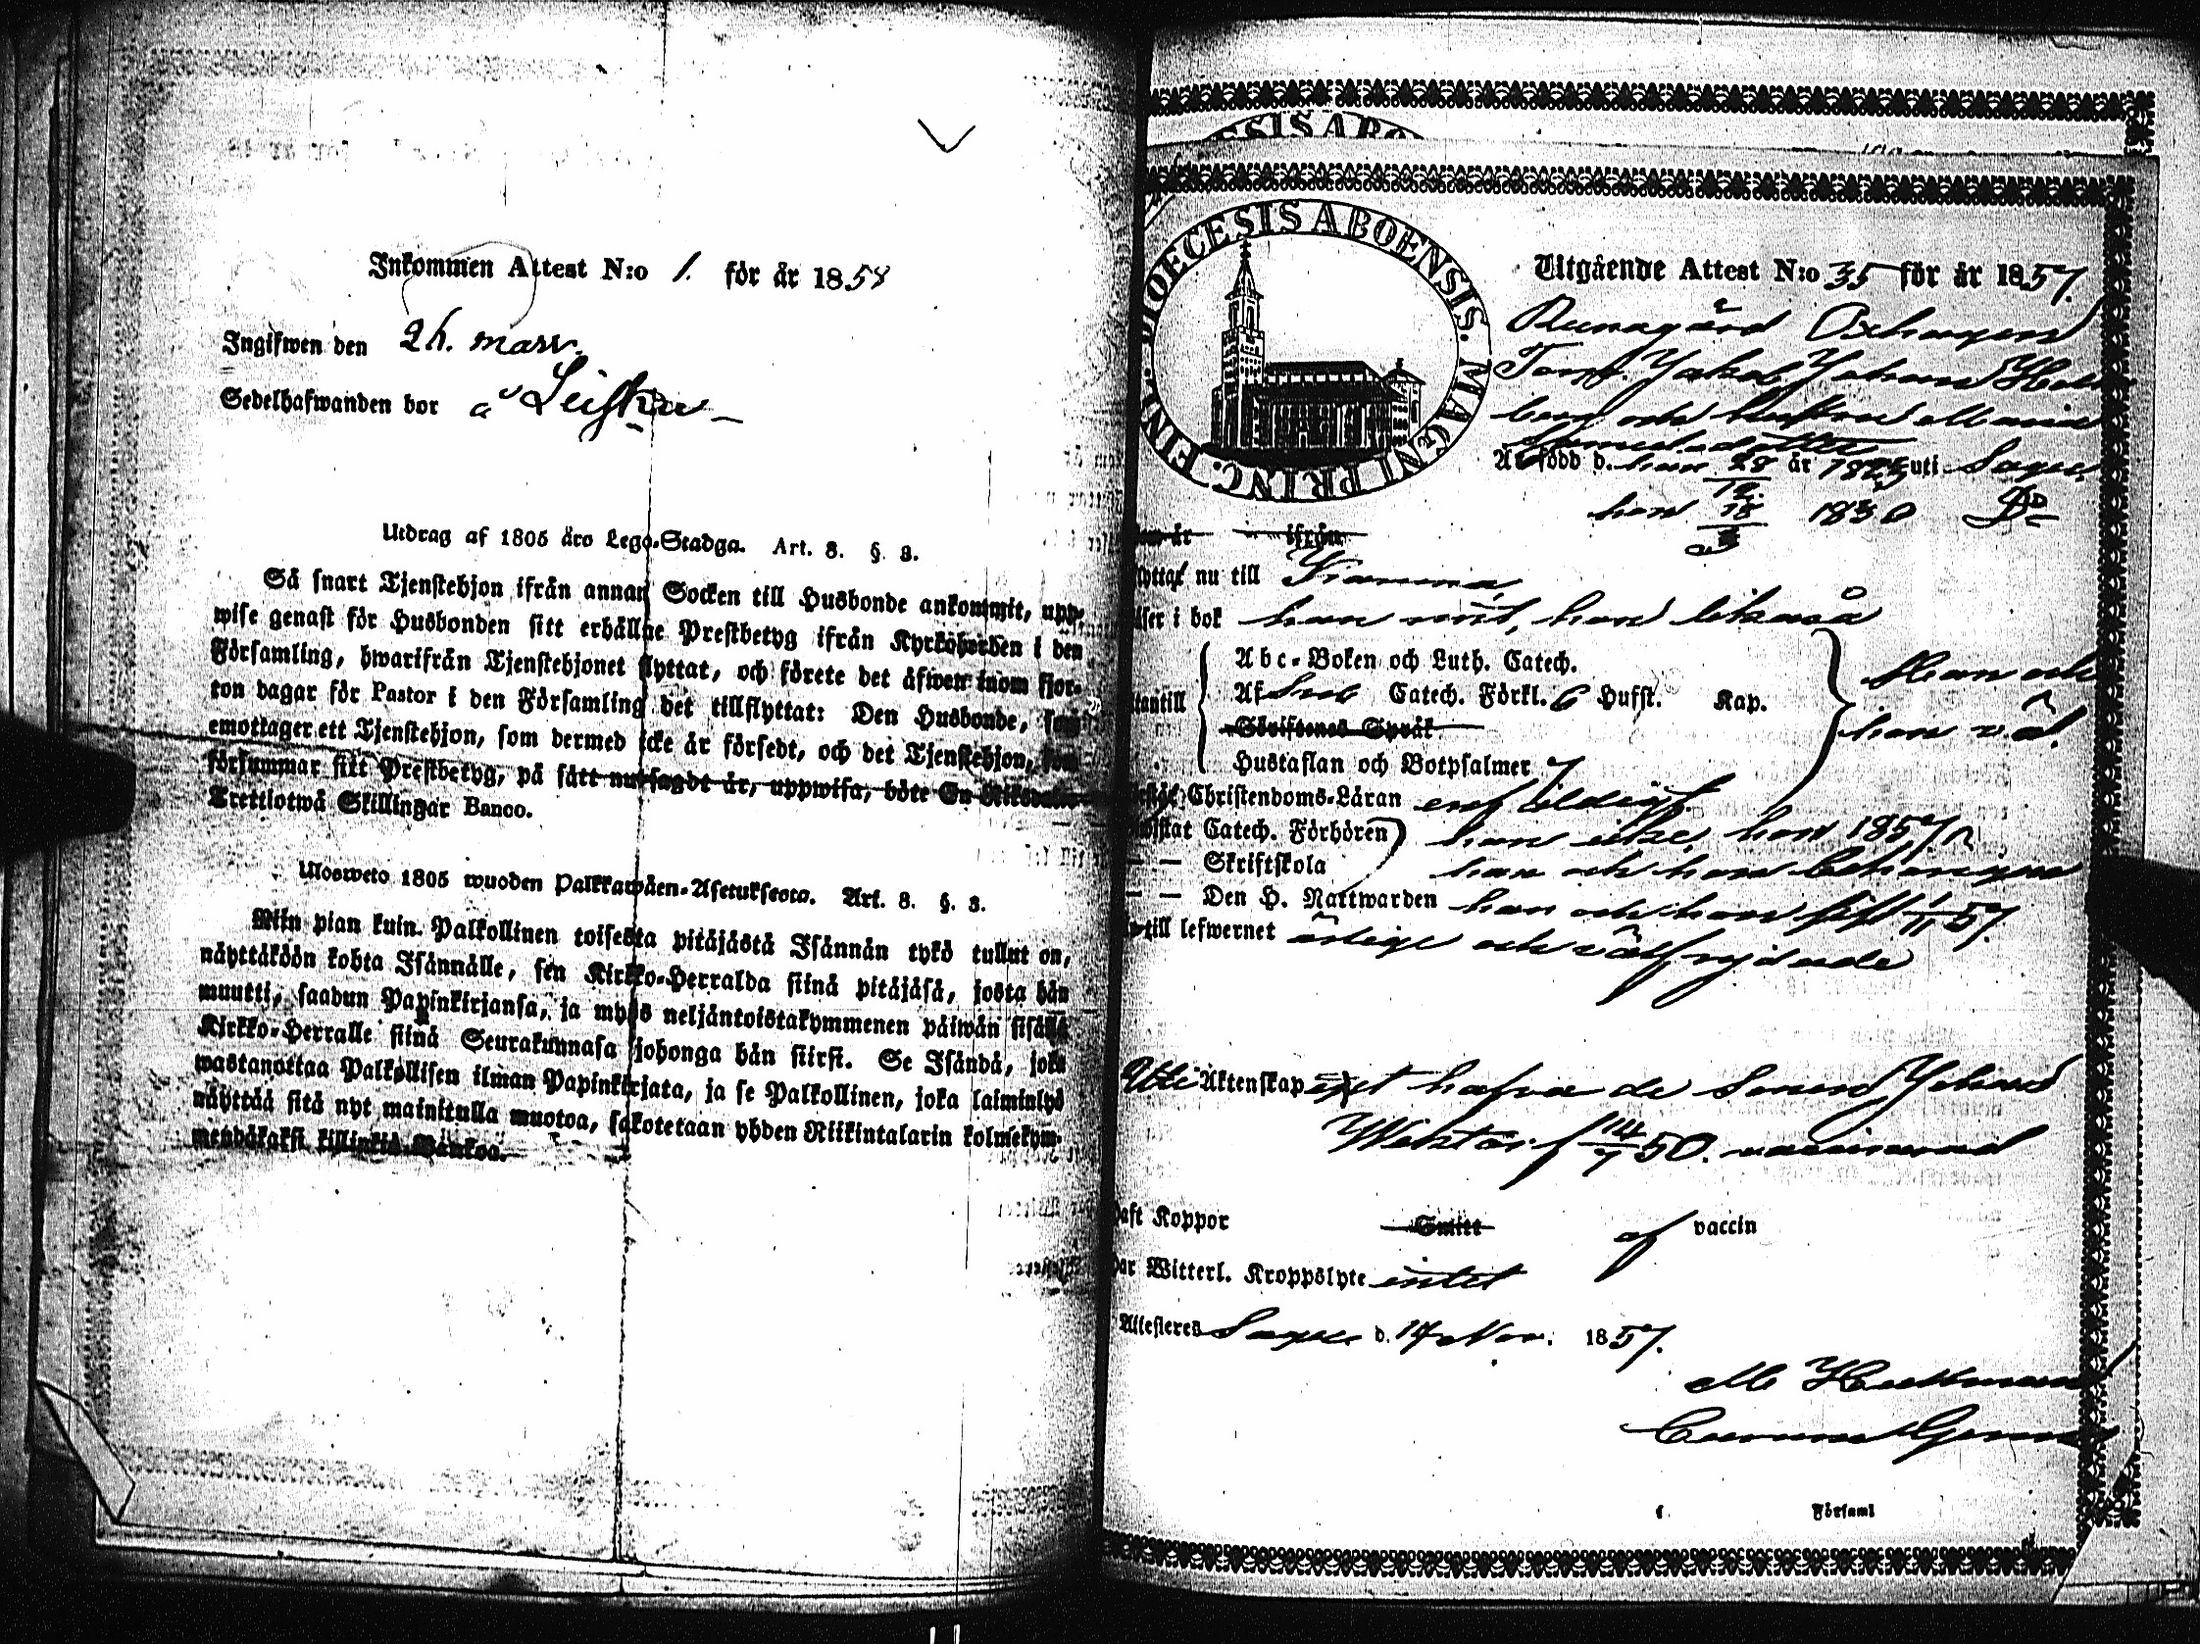 Inkommen Attest N:o 1. för år 1858
Ingifwen den 26. mars.
Sedelhafwanden bor å
Utdrag af 1805 års Lego-Stadga. Art. 8. §. 3.
Så snart Tjenstehjon ifrån annan Socken till Husbonde ankommit, upp-
wise genast för Husbonden sitt erhållne Prestbetyg ifrån Kyrkoherden i den
Församling, hwarifrån Tjenstehjonet flyttat, och förete det äfwen inom fjor-
ton dagar för Pastor i den Församling det tillflyttat: Den Husbonde, som
emottager ett Tjenstehjon, som dermed icke är försedt, och det Tjenstehjon, som
försummar sitt Prestbetyg, på sätt nu sagdt är, uppwisa, böte En Riksdaler
Trettiotwå Skillingar Banco.
Ulosweto 1805 wuoden Palkkawäen-Asetuksesta. Art. 8. §. 3.
Niin pian kuin Palkollinen toisesta pitäjästä Isännän tykö tullut on,
näyttäköön kohta Isännälle, sen Kirkko-Herralda siinä pitäjäsä, josta hän
muutti, saadun Papinkirjansa, ja myös neljäntoistakymmenen päiwän sisällä
Kirkko-Herralle siinä Seurakunnasa johonga hän siirsi. Se Isändä, joka
wastanottaa Palkollisen ilman Papinkirjata, ja se Palkollinen, joka laiminlyö
näyttää sitä nyt mainitulla muotoa, sakotetaan yhden Riikintalarin kolmekym-
mendäkaksi killinkiä Bankoa.
DIOECESIS ABOENSIS. MAGNI PRINC. FINL.
Utgående Attest N:o 35 för år 1857.
Jakob Johan
och hustrun Maria
Är född d. han 28/12 år uti
hon 18/3 1830 Do
är ifrån
flyttar nu till
läser i bok han nöjt, hon likaså
Abc-Boken och Luth. Catech.
utantill Af Catech. Förkl. 6 Hufst. Kap. Han och
Skriftenes Språk hon väl.
Hustaflan och Botpsalmer 7
Förstår Christendoms-Läran enfaldigt.
Bewistat Catech. Förhören han icke, hon 1857,
— — Skriftskola han och hon behörigen
— — Den H. Nattwarden han och hon sist 1/11 57.
Är till lefwernet ärlige och välfrejdade
Uti Äktenskapet hafva de Sonen Johan
Wiktor f 14/7 50. vaccinerad
Haft Koppor Smitt af vaccin
Har Witterl. Kroppslyte intet
Attesteres d. 14 Nov. 1857.
Församl